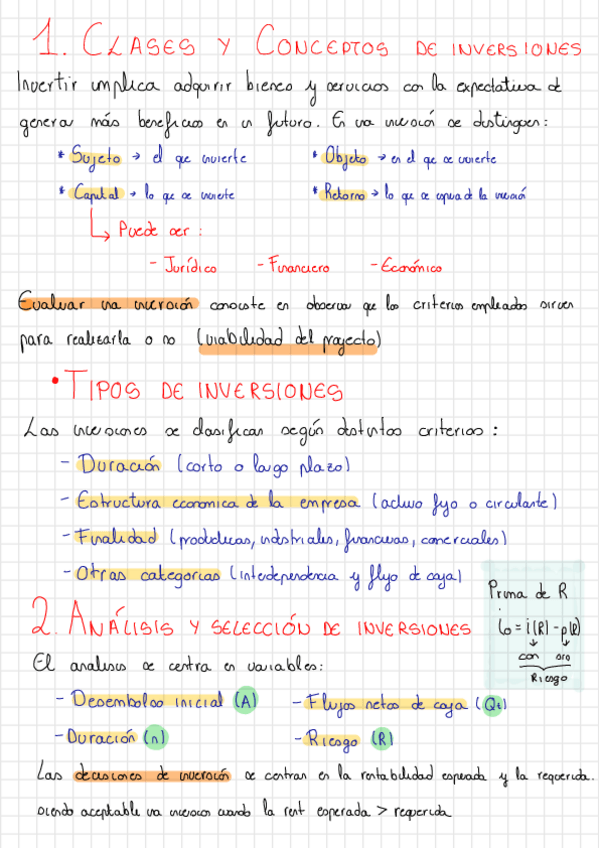 1. CLASES Y CONCEPTOS DE INVERSIONES
Invertir implica adquirir bienes y servicios con la expectativa de
generar más beneficios en un futuro. En una inversión se distinguen:
* Sujeto → el que invierte
* Objeto → en el que se invierte
* Capital → lo que se invierte
* Retorno → lo que se espera de la inversión
↳ Puede ser :
- Jurídico - Financiero - Económico
Evaluar una inversión consiste en observar que los criterios empleados sirven
para realizarla o no (viabilidad del proyecto)
• TIPOS DE INVERSIONES
Las inversiones se clasifican según distintos criterios :
- Duración (corto o largo plazo)
- Estructura economica de la empresa (activo fijo o circulante)
- Finalidad (productivas, industriales, financieras, comerciales)
- Otras categorias (interdependencia y flujo de caja)
Prima de R
i₀ = i(R) - p(R)
↓ ↓
con
Riesgo
2. ANÁLISIS Y SELECCIÓN DE INVERSIONES
El analisis se centra en variables:
- Desembolso inicial (A)
- Flujos netos de caja (Qt)
- Duración (n)
- Riesgo (R)
Las decisiones de inversión se centran en la rentabilidad esperada y la requerida.
siendo aceptable una inversion cuando la rent esperada > requerida